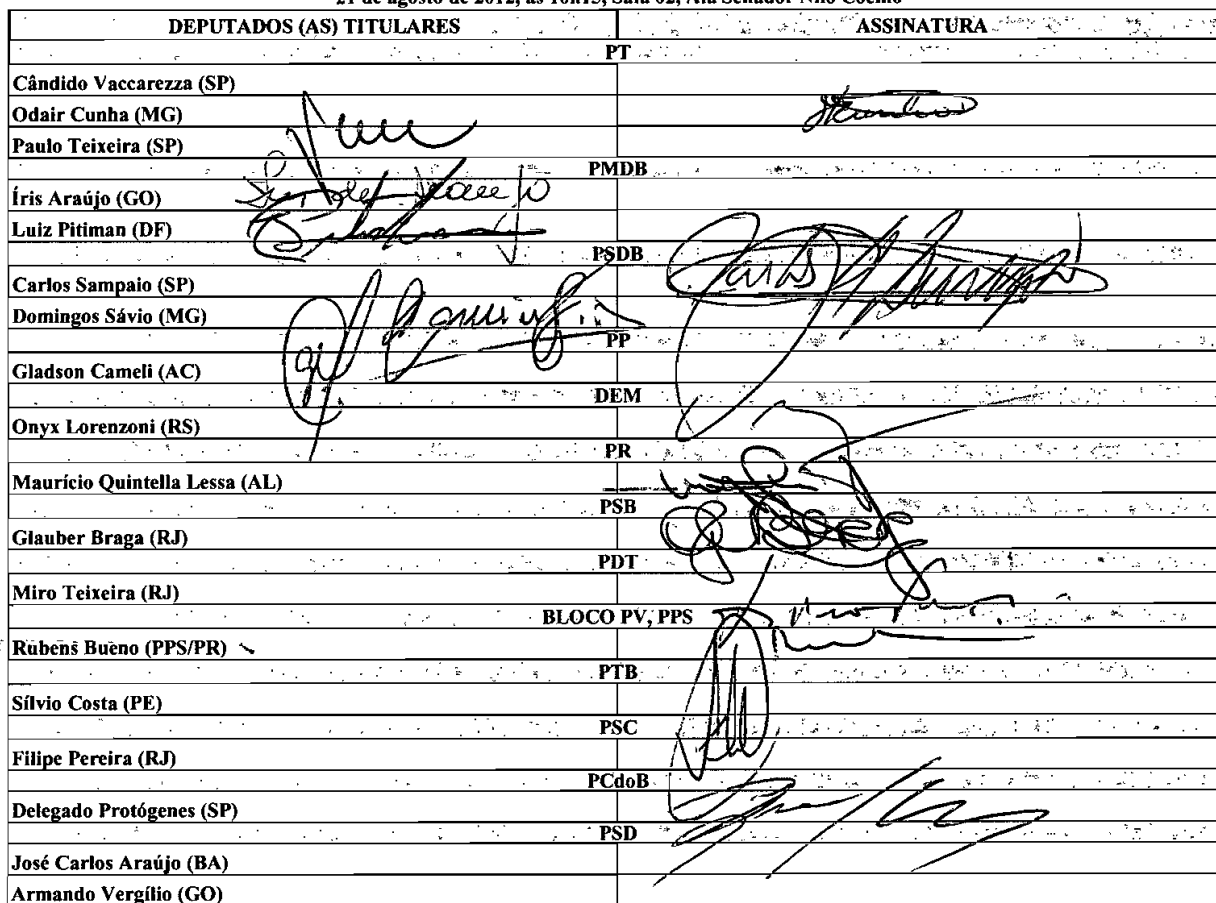 21 de agosto de 2012, às 10h15, Sala 02, Ala Senador Nilo Coelho
DEPUTADOS (AS) TITULARES ASSINATURA
PT
Cândido Vaccarezza (SP)
Odair Cunha (MG)
Paulo Teixeira (SP)
PMDB
Íris Araújo (GO)
Luiz Pitiman (DF)
PSDB
Carlos Sampaio (SP)
Domingos Sávio (MG)
PP
Gladson Cameli (AC)
DEM
Onyx Lorenzoni (RS)
PR
Maurício Quintella Lessa (AL)
PSB
Glauber Braga (RJ)
PDT
Miro Teixeira (RJ)
BLOCO PV, PPS
Rubens Bueno (PPS/PR)
PTB
Sílvio Costa (PE)
PSC
Filipe Pereira (RJ)
PCdoB
Delegado Protógenes (SP)
PSD
José Carlos Araújo (BA)
Armando Vergílio (GO)